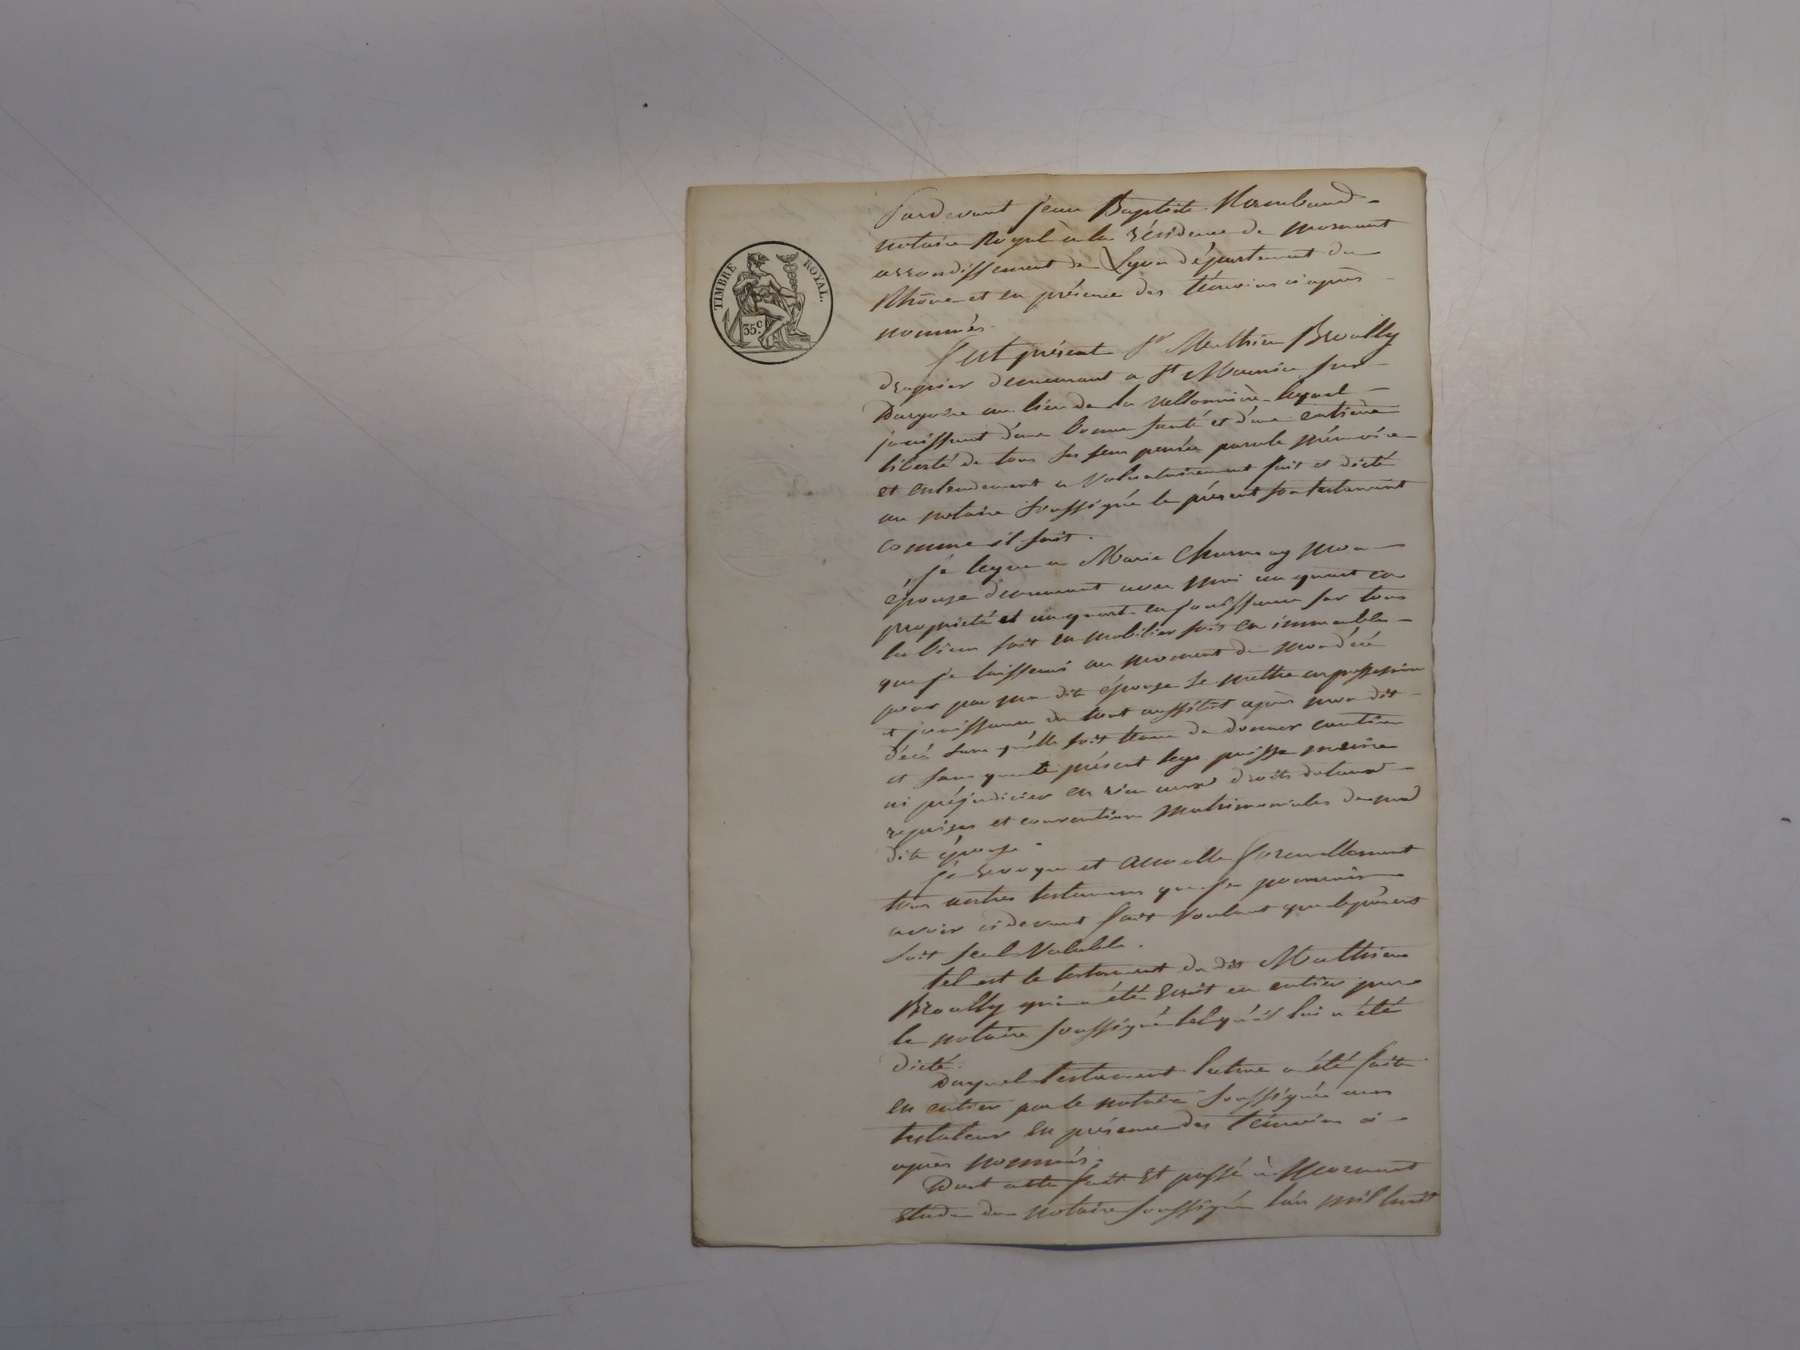 TIMBRE ROYAL.
35 c.
Pardevant jean Baptiste
notaire Royal à la résidence de mornant
arrondissement de Lyon département du
Rhône et en présence des témoins ci après
nommés.
fut présent Sr Mathieu Brouilly
drapier demeurant a St Maurice sur
Dargoire au lieu de la lequel
jouissant d'une bonne santé et d'une entière
liberté de tous ses sens pensée parole mémoire
et entendement a Volontairement fait et dicté
au notaire soussigné le présent son testament
comme il suit.
je legue a Marie Charnay mon
épouse demeurant avec moi un quart en
propriété et un quart en jouissance sur tous
les biens soit en mobilier soit en immeubles
que je laisserai au moment de mon décé
pour par ma dite épouse se mettre en possession
et jouissance du tout aussitôt après mon dit
décé sans qu'elle soit tenue de donner caution
et sans que le présent legs puisse nuire
ni préjudicier en rien aux droits
reprises et conventions matrimoniales de mad
dite épouse.
je revoque et annulle formellement
tous autres testamens que je pourrais
avoir cidevant fait Voulant que le présent
soit seul Valable.
tel est le testament du dit Mathieu
Brouilly qui a été Ecrit en entier par
le notaire soussigné tel qu'il lui a été
dicté.
Duquel testament lecture a été faite
en entier par le notaire soussigné au
testateur en présence des témoins ci
après nommés.
Dont acte fait et passé à Mornant
Etude du notaire soussigné l'an mil huit